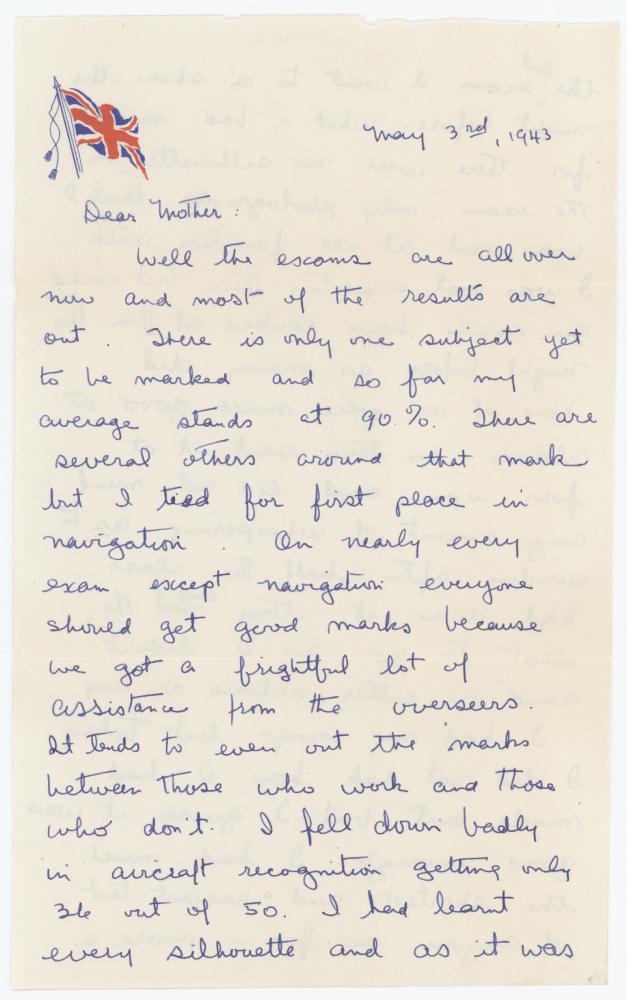 May 3rd, 1943
Dear Mother:
Well the exams are all over
now and most of the results are
out. There is only one subject yet
to be marked and so far my
average stands at 90%. There are
several others around that mark
but I tied for first place in
navigation. On nearly every
exam except navigation everyone
should get good marks because
we got a frightful lot of
assistance from the overseers.
It tends to even out the marks
between those who work and those
who don't. I fell down badly
in aircraft recognition getting only
36 out of 50. I had learnt
every silhouette and as it was